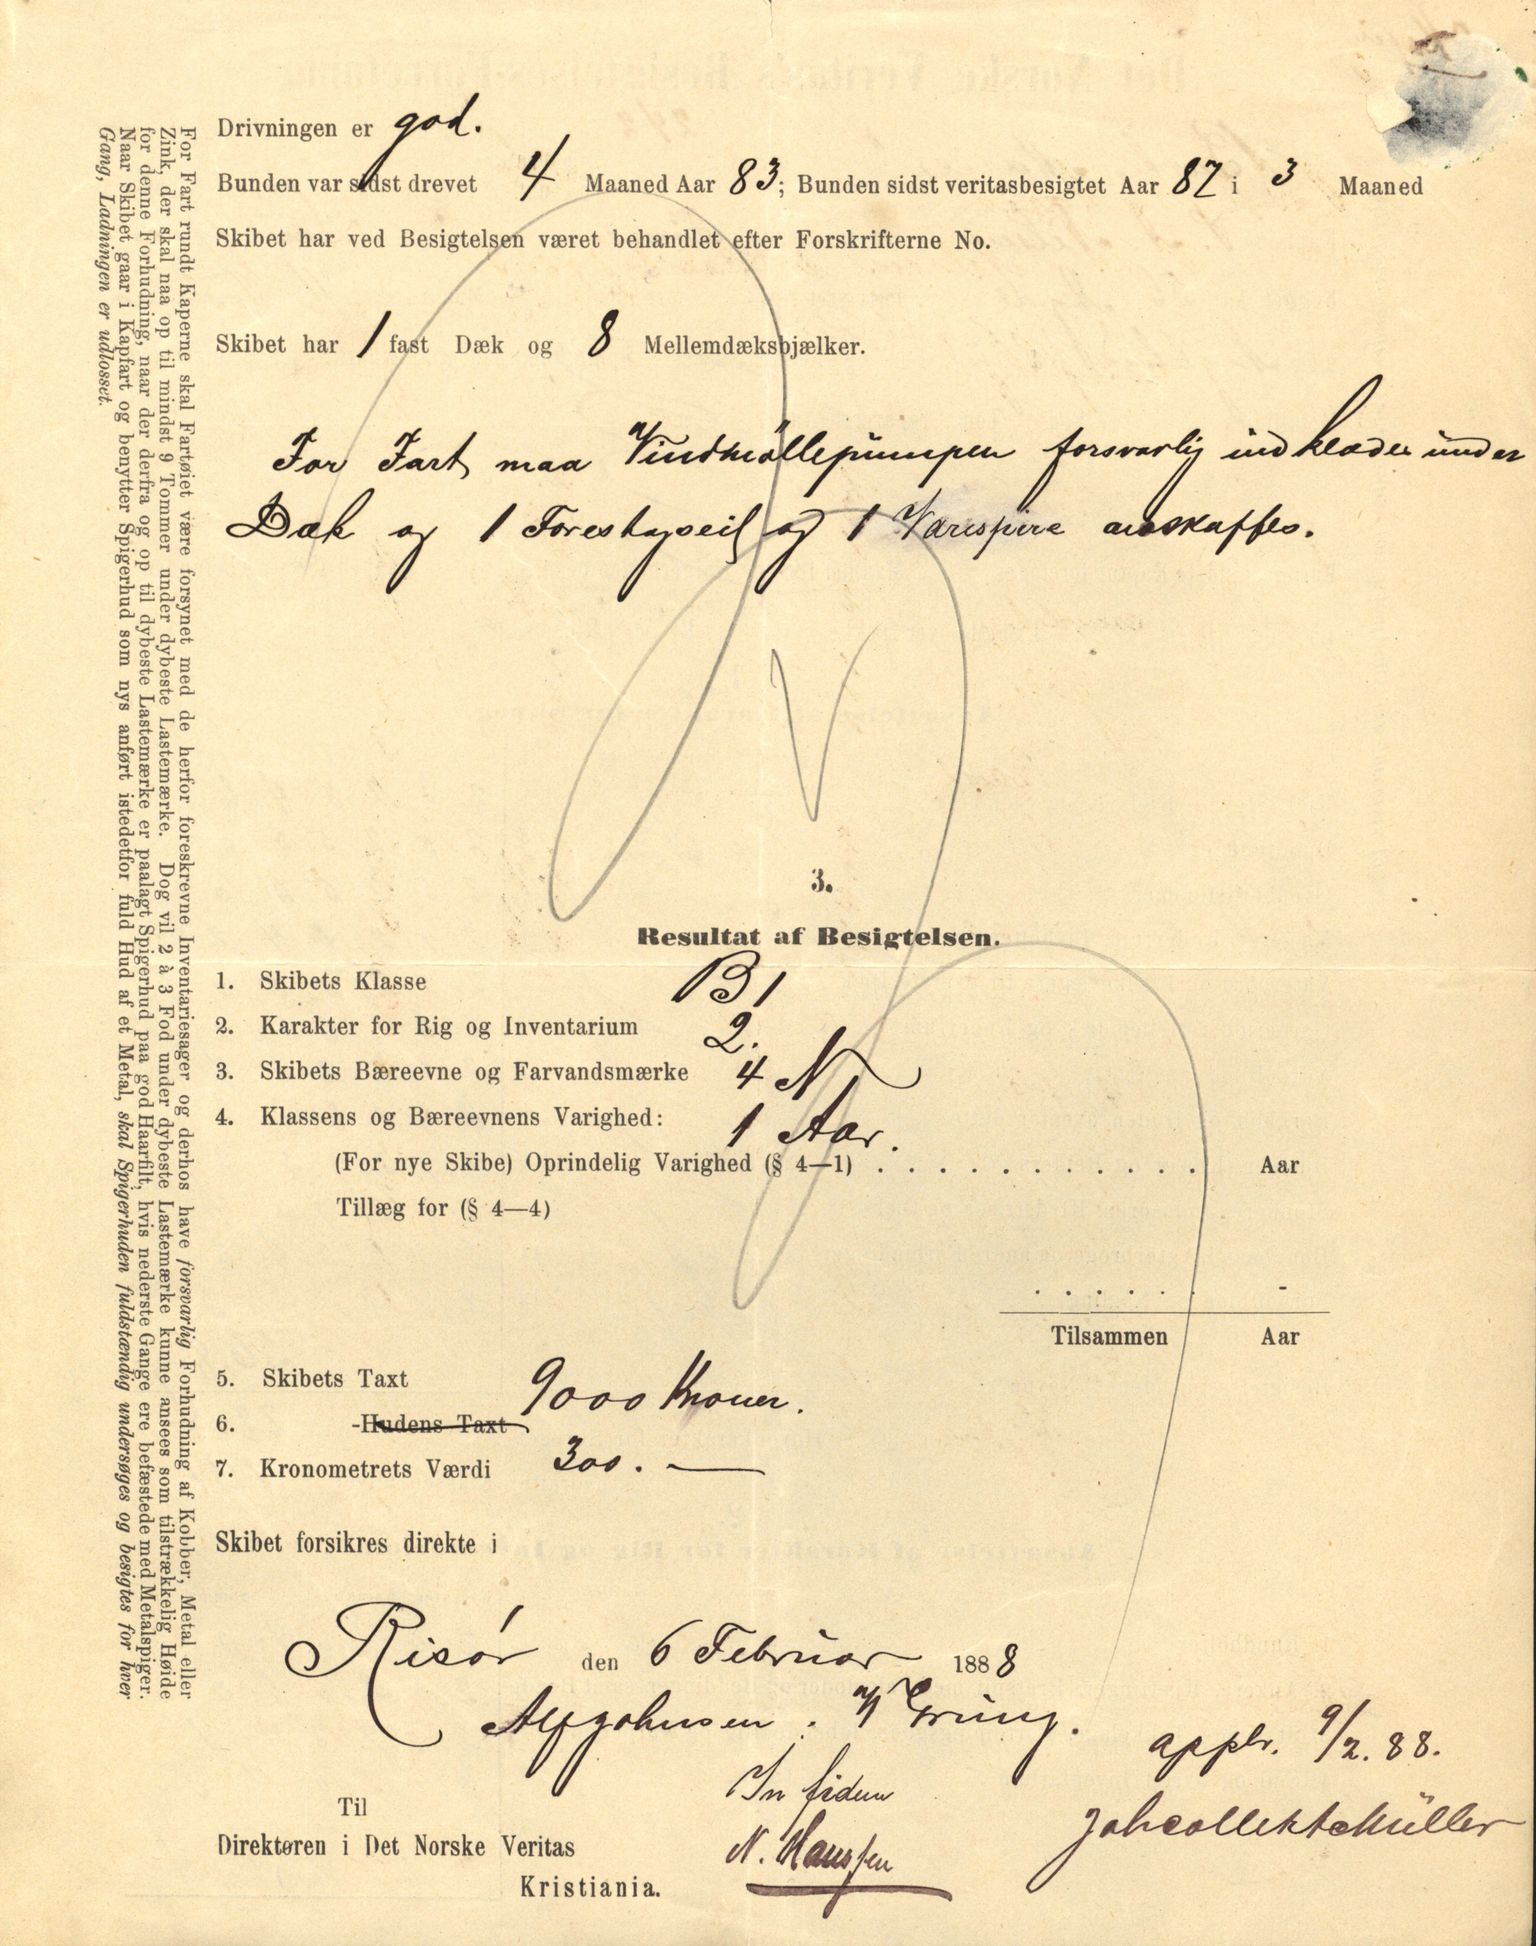 Drivningen er god.
Bunden var sidst drevet 4 Maaned Aar 83; Bunden sidst veritasbesigtet Aar 87 i 3 Maaned
Skibet har ved Besigtelsen været behandlet efter Forskrifterne No.
Skibet har 1 fast Dæk og 8 Mellemdæksbjælker.
For Fart maa Vindmöllepumpen forsvarlig indklædes under
Dæk og 1 Forestagseil og 1 Varespire anskaffes.
3.
Resultat af Besigtelsen.
1. Skibets Klasse B 1
2. Karakter for Rig og Inventarium 2.
3. Skibets Bæreevne og Farvandsmærke 4 N
4. Klassens og Bæreevnens Varighed: 1 Aar.
(For nye Skibe) Oprindelig Varighed (§ 4—1) . . . . . . . . . . . . Aar
Tillæg for (§ 4—4)
. . . . . . -
Tilsammen Aar
5. Skibets Taxt 9000 Kroner.
6. -Hudens Taxt
7. Kronometrets Værdi 300. —
Skibet forsikres direkte i
Risør den 6 Februar 1888
Alf Johnsen. N Grung.
applr. 9/2. 88.
In fidem
Til
Direktøren i Det Norske Veritas
N. Hanssen
Kristiania.
For Fart rundt Kaperne skal Fartøiet være forsynet med de herfor foreskrevne Inventariesager og derhos have forsvarlig Forhudning af Kobber, Metal eller
Zink, der skal naa op til mindst 9 Tommer under dybeste Lastemærke. Dog vil 2 à 3 Fod under dybeste Lastemærke kunne ansees som tilstrækkelig Høide
for denne Forhudning, naar der derfra og op til dybeste Lastemærke er paalagt Spigerhud paa god Haarfilt, hvis nederste Gange ere befæstede med Metalspiger.
Naar Skibet gaar i Kapfart og benytter Spigerhud som nys anført istedetfor fuld Hud af et Metal, skal Spigerhuden fuldstændig undersøges og besigtes for hver
Gang, Ladningen er udlosset.